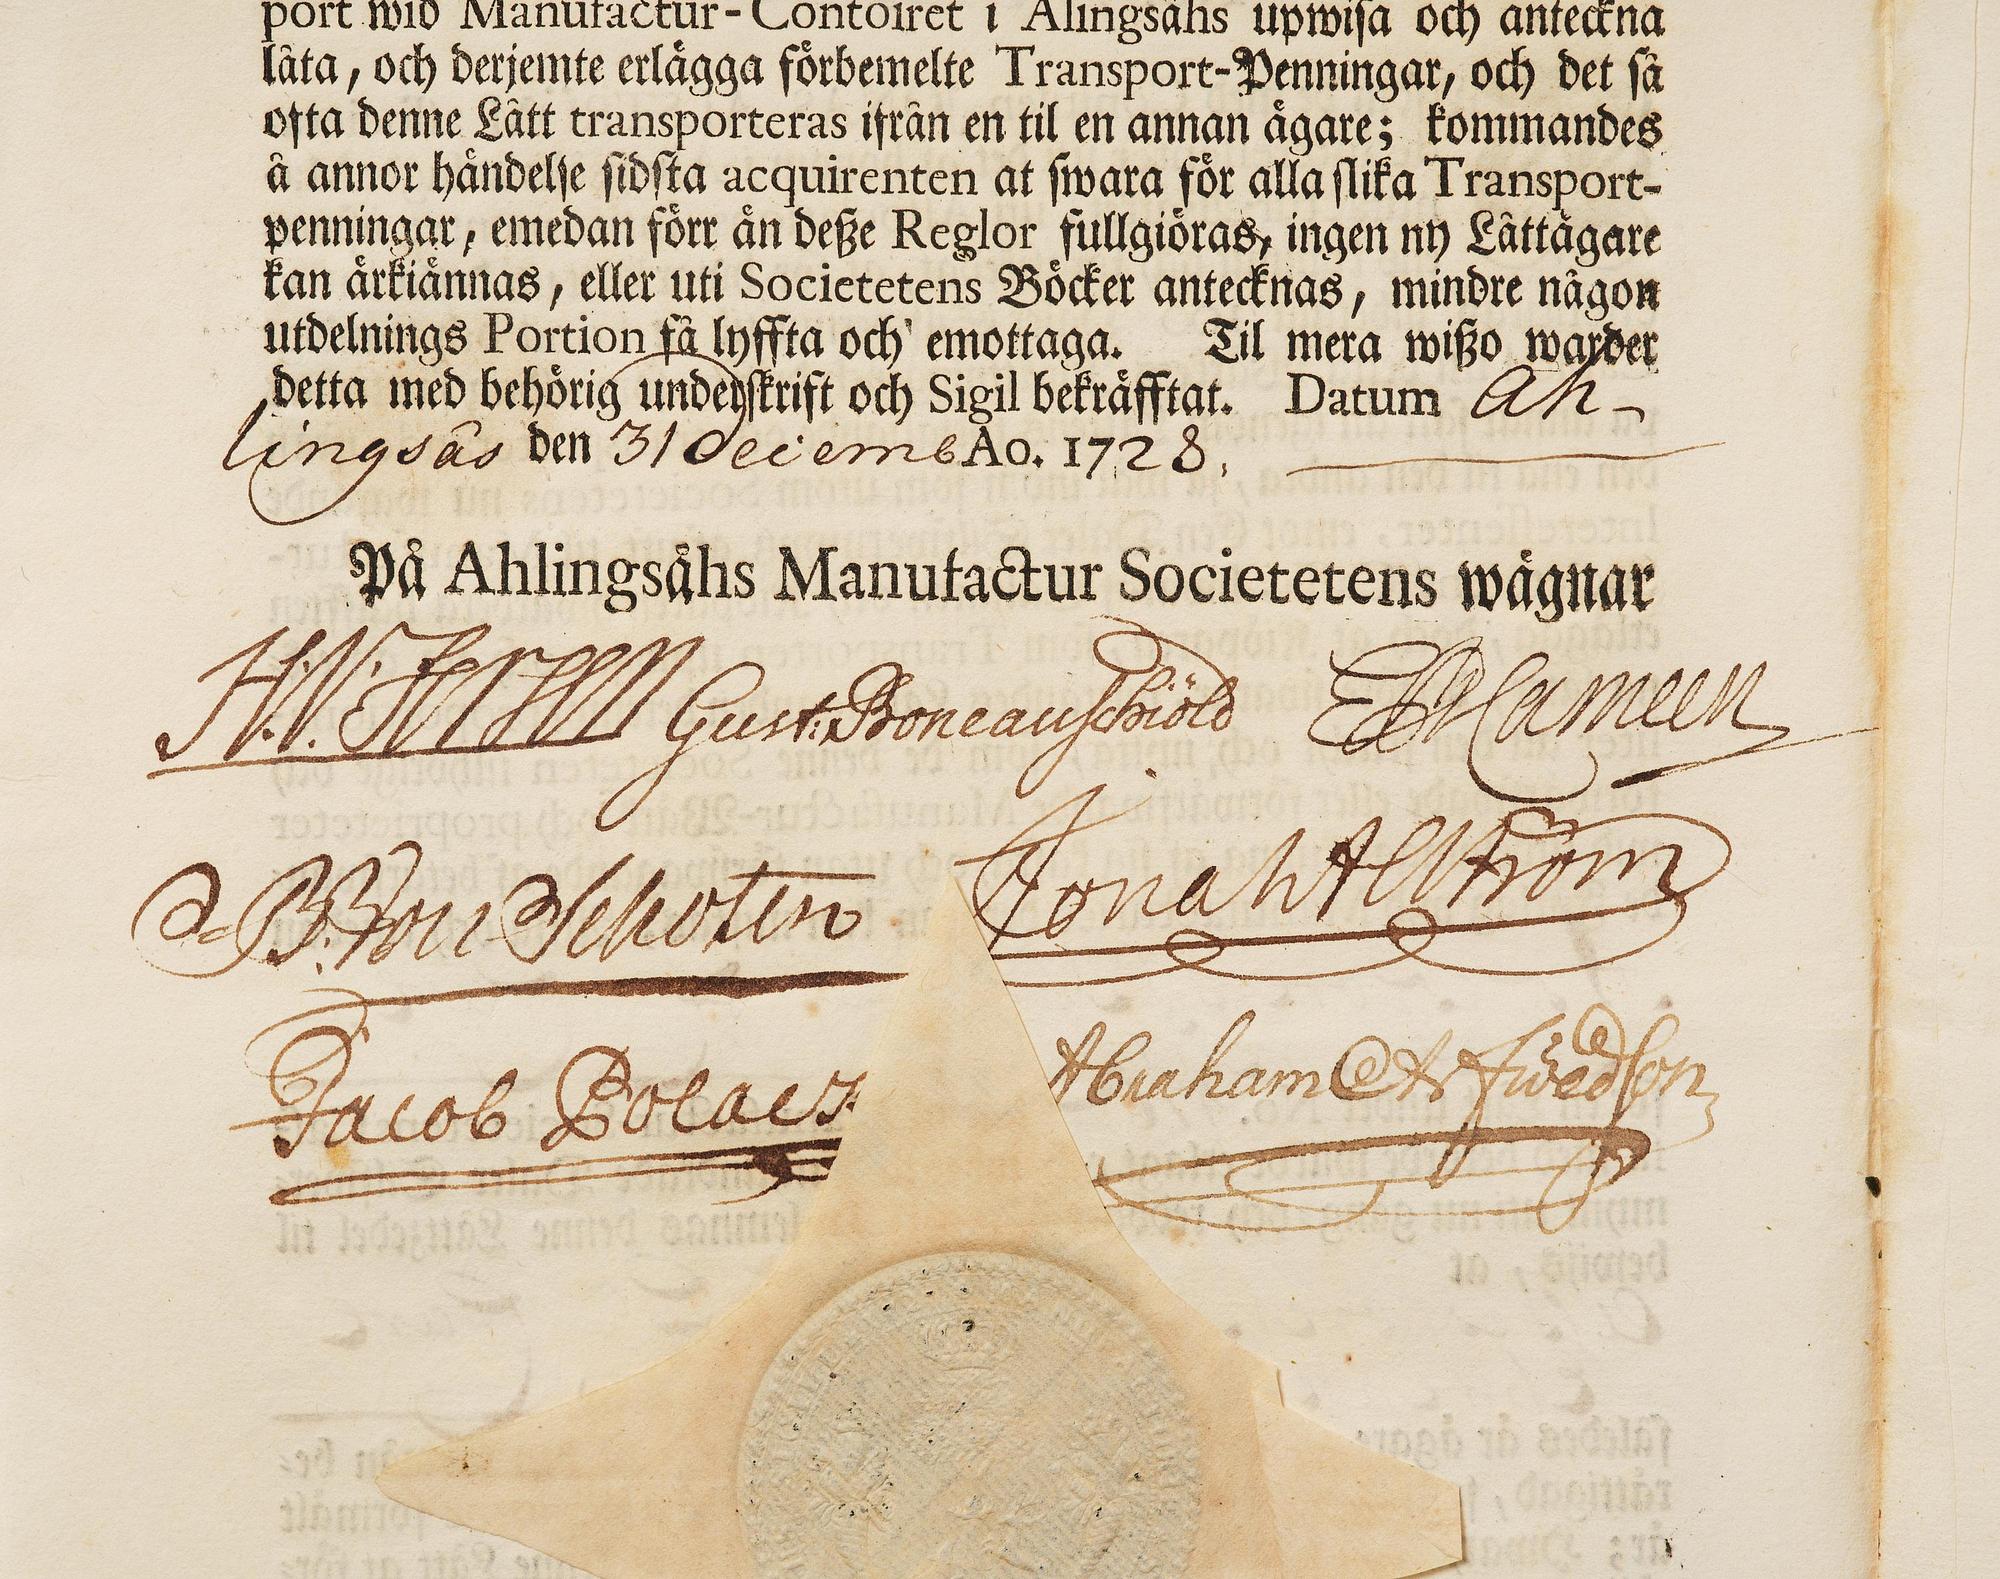 port wid Manufactur-Contoiret i Alingsåhs upwisa och anteckna
låta, och derjemte erlägga förbemelte Transport-Penningar, och det så
ofta denne Lått transporteras ifrån en til en annan ägare; kommandes
å annor händelse sidsta acquirenten at swara för alla slika Transport-
penningar, emedan förr än deße Reglor fullgiöras, ingen ny Låttägare
kan ärkiännas, eller uti Societetens Böcker antecknas, mindre någon
utdelnings Portion få lyffta och emottaga. Til mera wißo warder
detta med behörig underskrift och Sigil bekräfftat. Datum Ah-
lingsås den 31 Decemb Ao. 1728.
På Ahlingsåhs Manufactur Societetens wägnar
H. V. Fersen Gust: Boneauschiöld Hameen
B. Von Schoten Jonas Alström
Jacob Polack Abraham Arfwedson